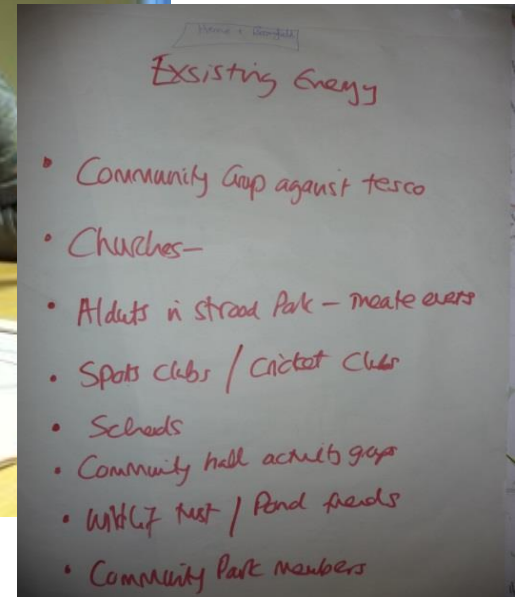 Exsisting Energy
• Community Group against tesco
• Churches–
• in Strood Park – theatre events
• Sports clubs / Cricket Clubs
• Schools
• Community hall activity groups
• trust / Pond friends
• Community Park members